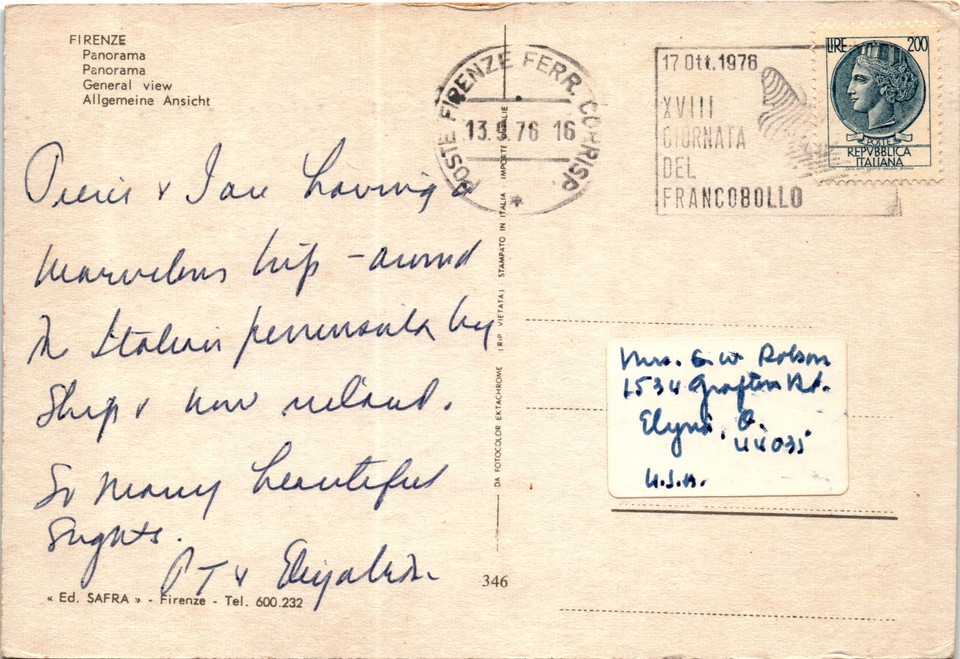 FIRENZE
Panorama
Panorama
General view
Allgemeine Ansicht
POSTE FIRENZE FERR. CORRISP.
13.9.76 16
17 Ott. 1976
XVIII
GIORNATA
DEL
FRANCOBOLLO
LIRE 200
POSTE
REPVBBLICA
ITALIANA
& I are having a
marvelous trip - around
the Italian peninsula by
Ship & now inland.
So many beautiful
Sights.
P T & Elizabeth
DA FOTOCOLOR EKTACHROME (RIP. VIETATA) STAMPATO IN ITALIA IMPORTE ITALIE
Mrs. G. W. Robson
1534 Grafton Rd.
Elyria, O.
44035
U.S.A.
« Ed. SAFRA » - Firenze - Tel. 600.232
346